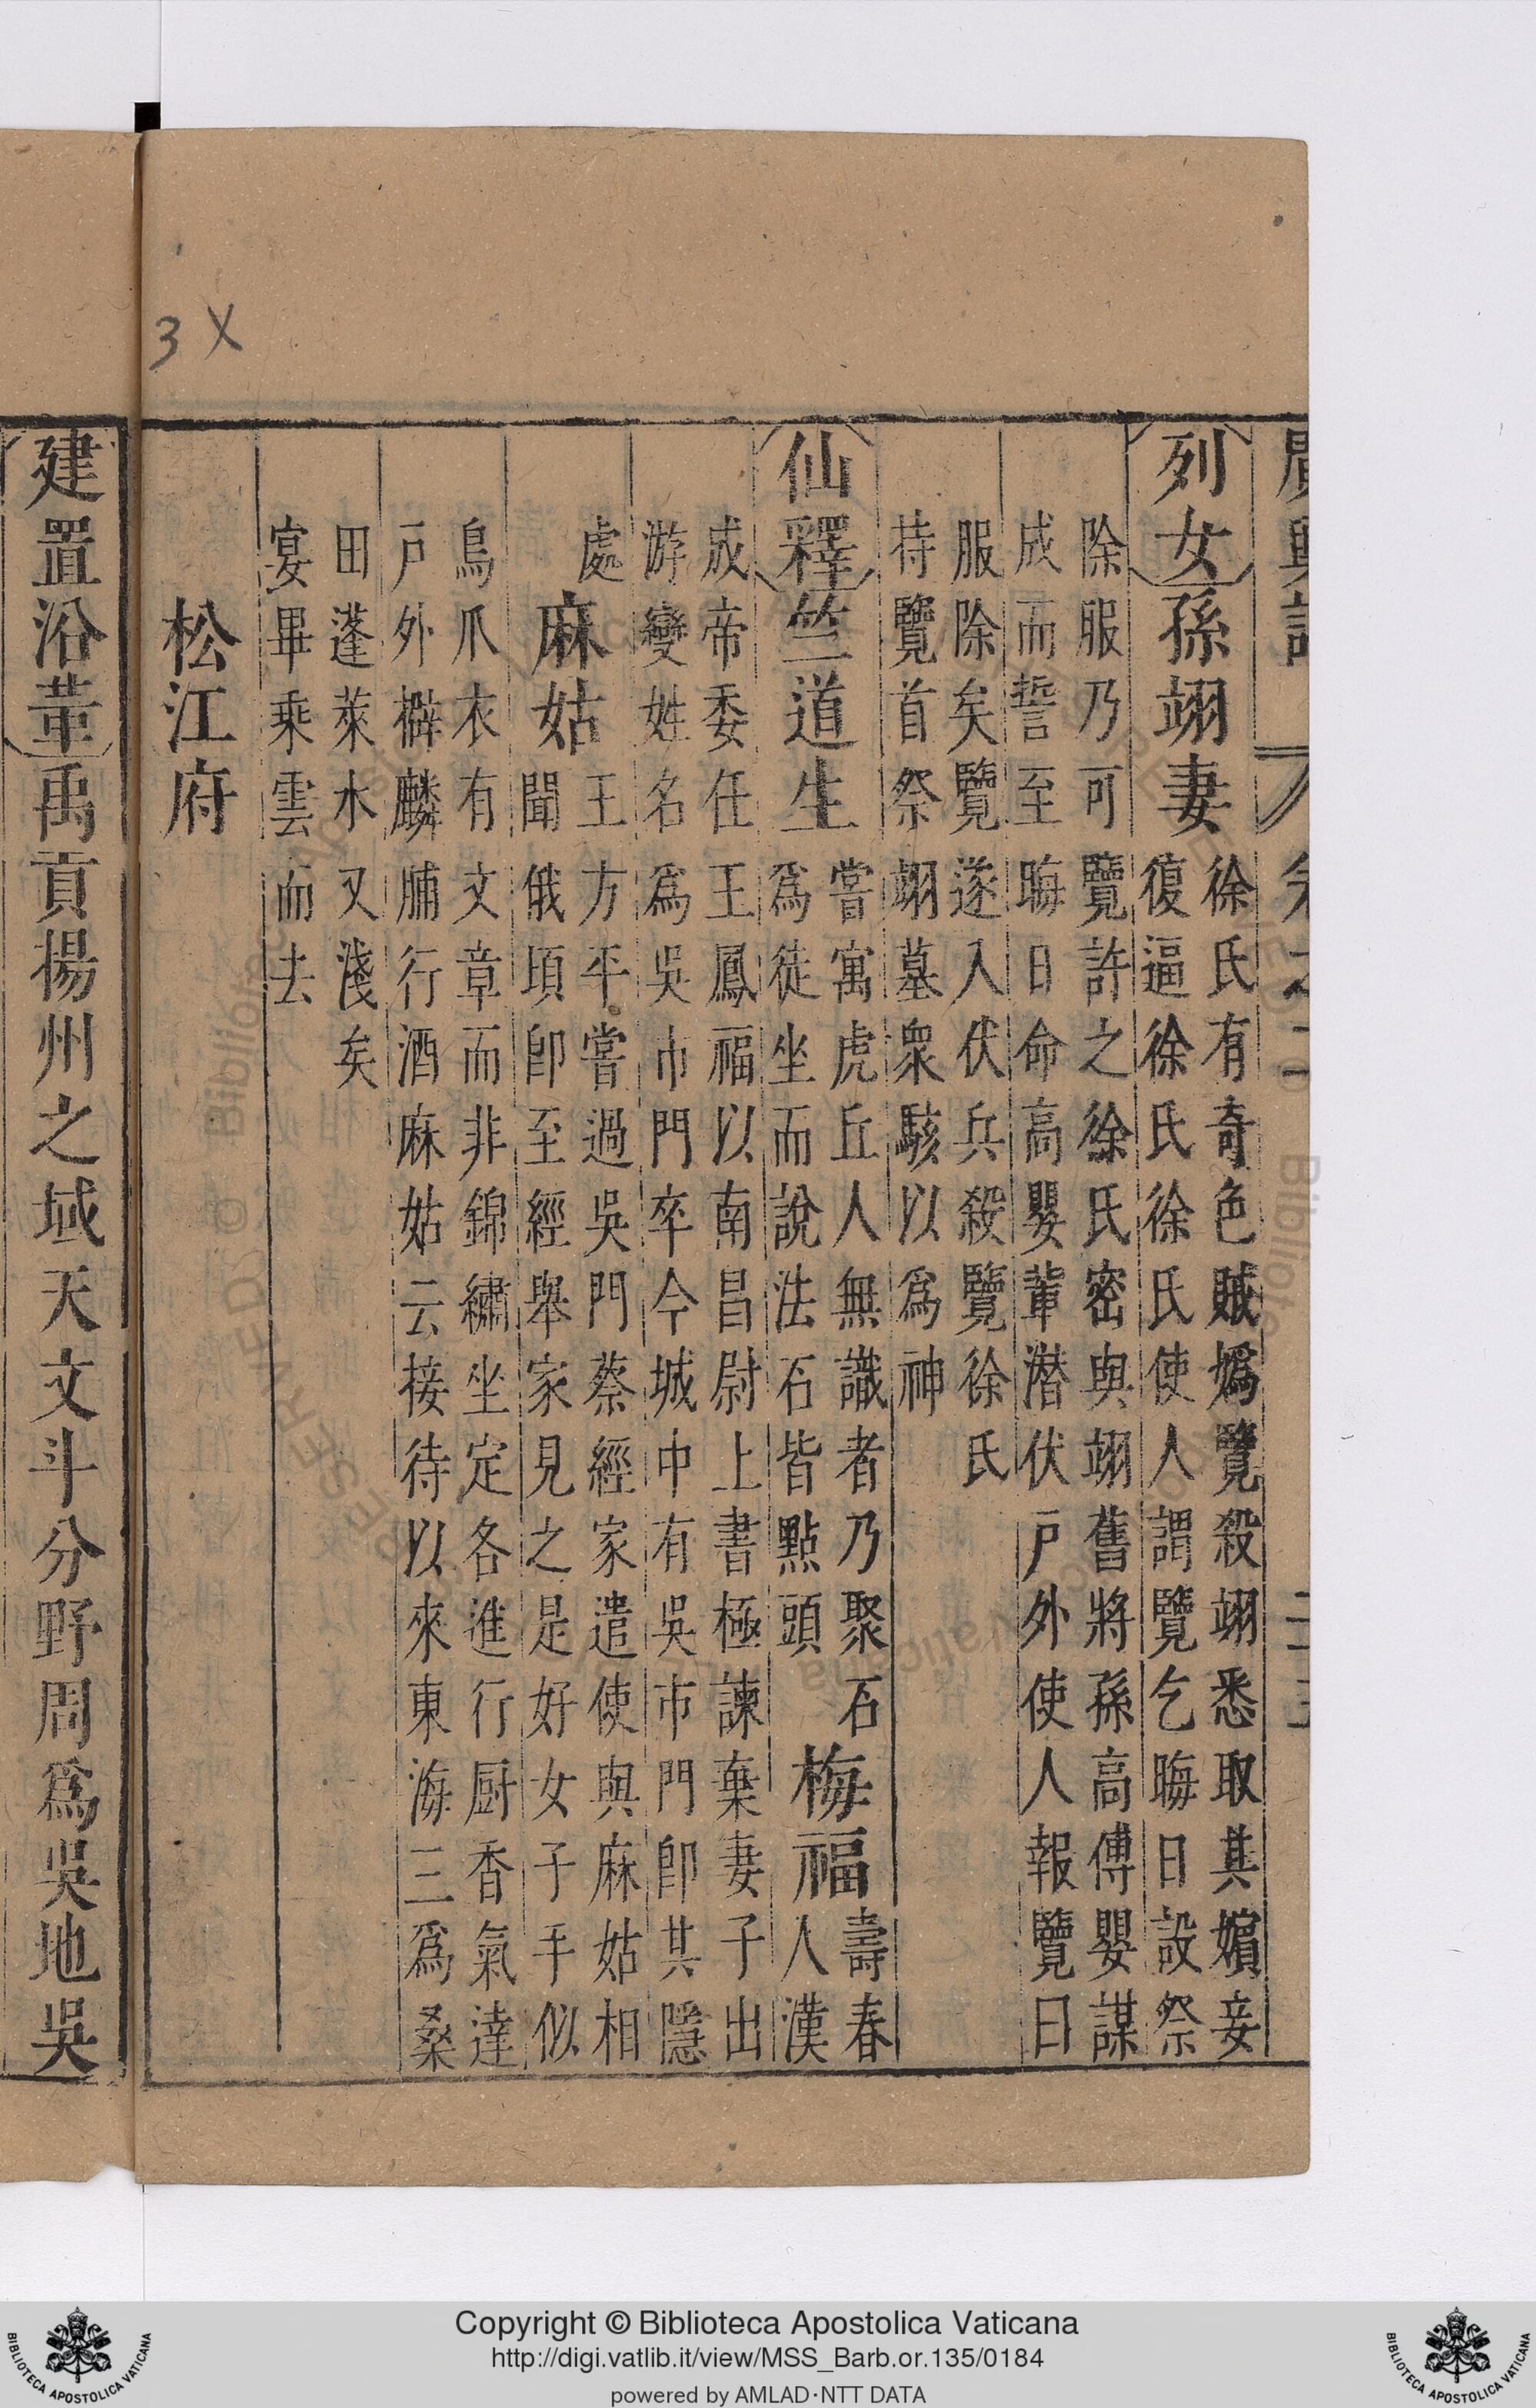 廣輿記 卷之二
列女 孫翊妻 徐氏有奇色賊媯覽殺翊悉取其嬪妾
復逼徐氏徐氏使人謂覽乞晦日設祭
除服乃可覽許之徐氏密與翊舊將孫高傅嬰謀
成而誓至晦日命高嬰輩潛伏戶外使人報覽曰
服除矣覽遂入伏兵殺覽徐氏
持覽首祭翊墓衆駭以爲神
仙釋 竺道生 嘗寓虎丘人無識者乃聚石
爲徒坐而說法石皆點頭 梅福 壽春
人漢
成帝委任王鳳福以南昌尉上書極諫棄妻子出
游變姓名爲吳市門卒今城中有吳市門卽其隱
處 麻姑 王方平嘗過吳門蔡經家遣使與麻姑相
聞俄頃卽至經舉家見之是好女子手似
鳥爪衣有文章而非錦繡坐定各進行厨香氣達
戶外擗麟脯行酒麻姑云接待以來東海三爲桑
田蓬萊水又淺矣
宴畢乘雲而去
松江府
建置沿革 禹貢揚州之域天文斗分野周爲吳地吳
3 X
Copyright © Biblioteca Apostolica Vaticana
http://digi.vatlib.it/view/MSS_Barb.or.135/0184
powered by AMLAD·NTT DATA
BIBLIOTECA APOSTOLICA VATICANA
BIBLIOTECA APOSTOLICA VATICANA